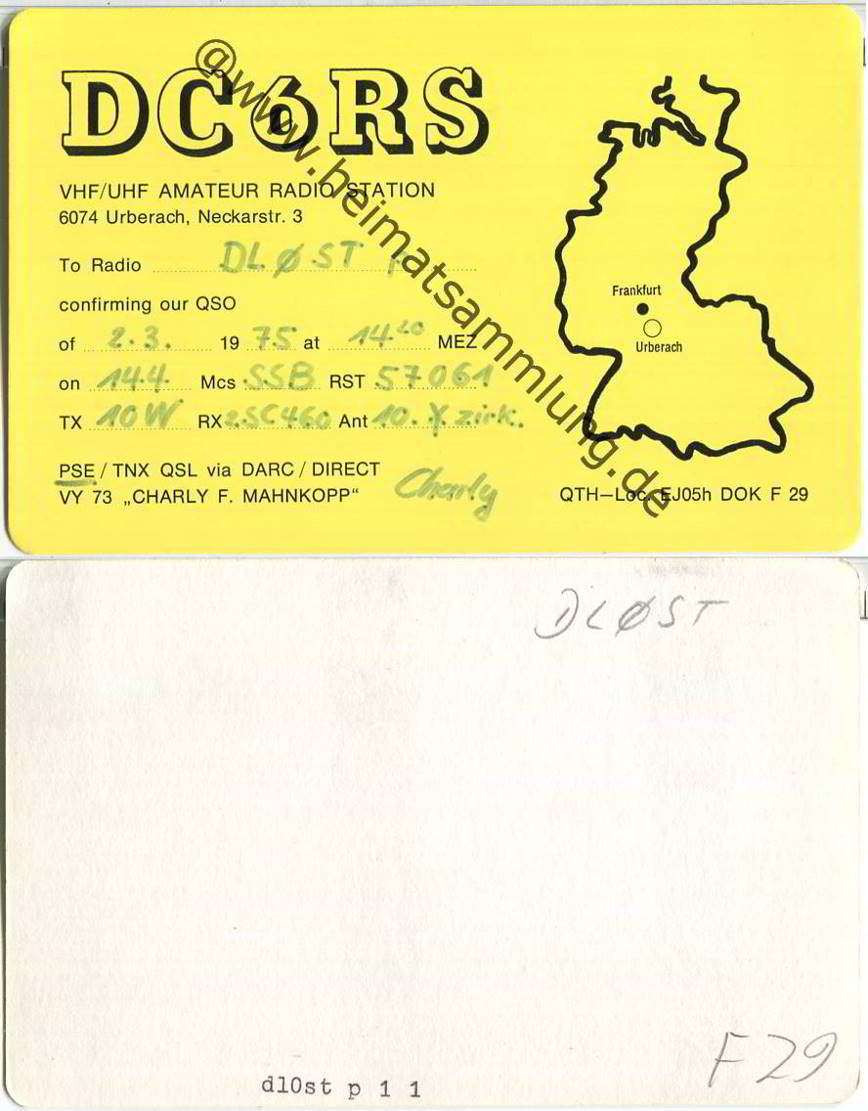 DC6RS
VHF/UHF AMATEUR RADIO STATION
6074 Urberach, Neckarstr. 3
To Radio DLØST
confirming our QSO
of 2.3. 1975 at 14²⁰ MEZ
on 144 Mcs SSB RST 57061
TX 10W RX 2SC460 Ant 10. Y zirk.
PSE / TNX QSL via DARC / DIRECT
VY 73 „CHARLY F. MAHNKOPP“ Charly
Frankfurt
Urberach
QTH—Loc. EJ05h DOK F 29
@www.heimatsammlung.de
DLØST
F29
dl0st p 1 1